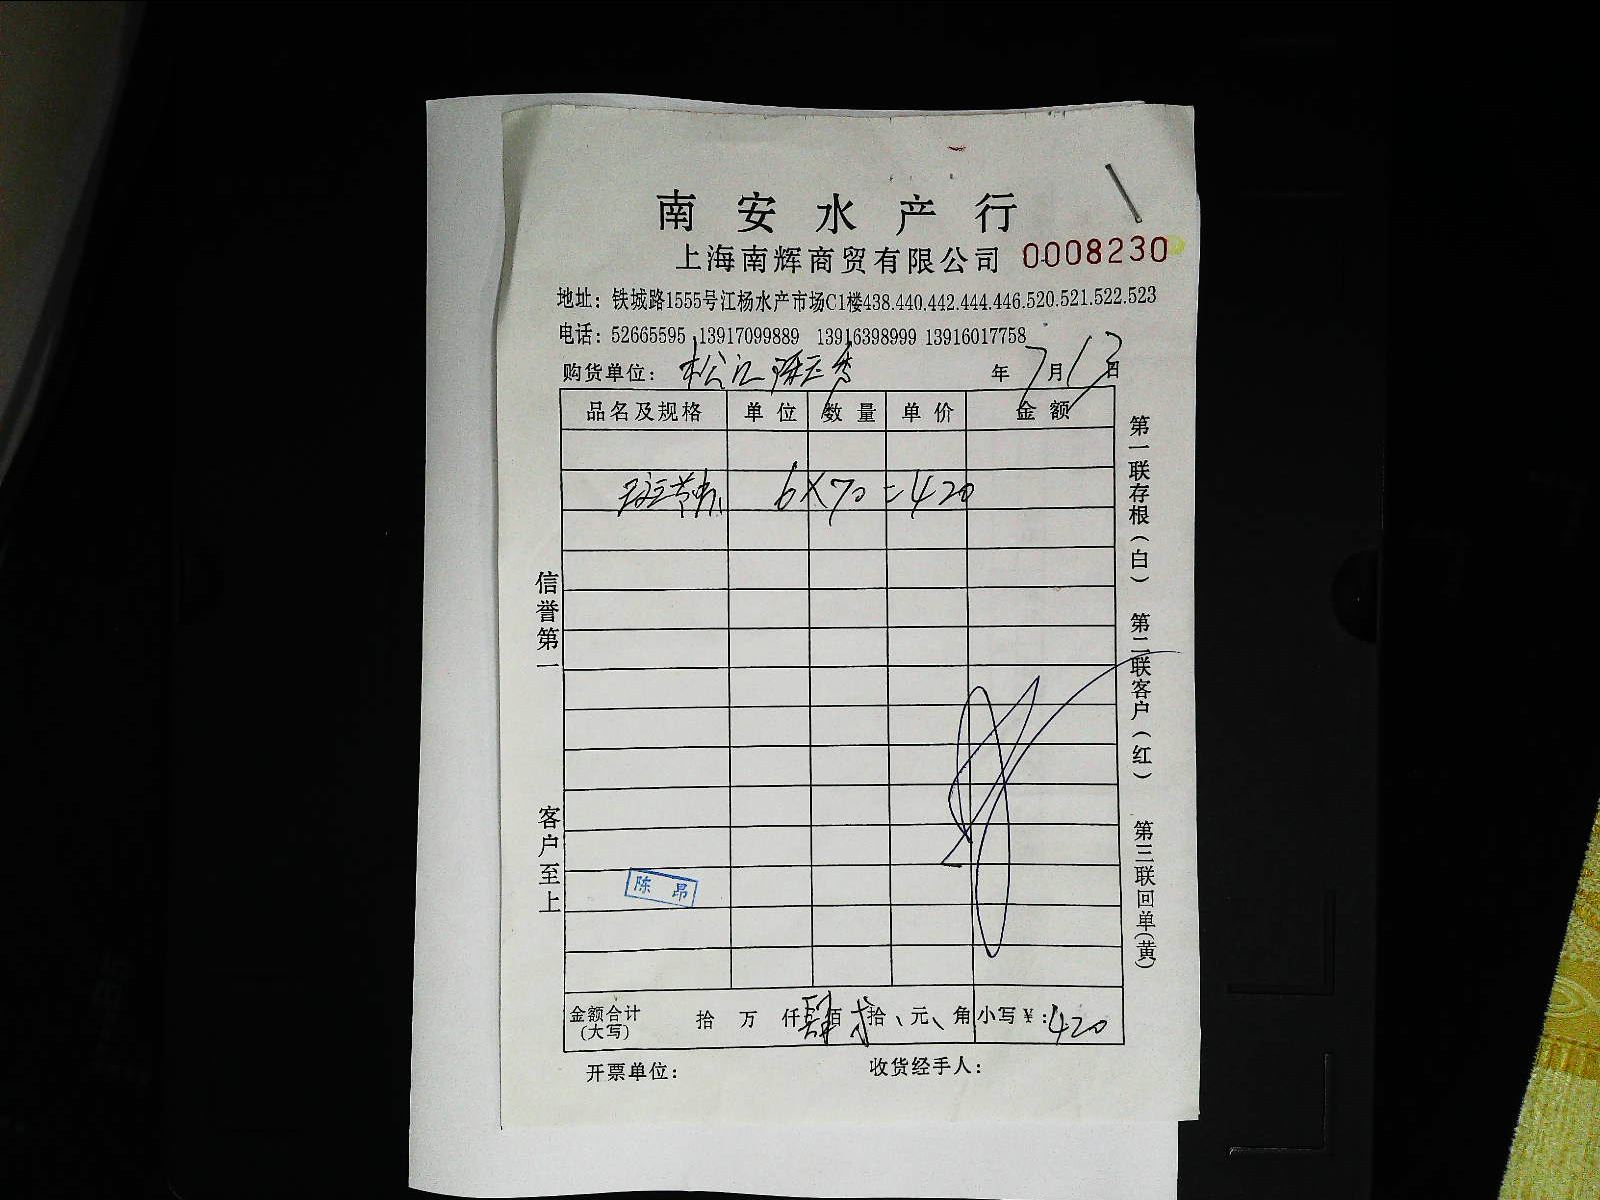 南安水产行
上海南辉商贸有限公司 0008230
地址：铁城路1555号江杨水产市场C1楼438.440.442.444.446.520.521.522.523
电话：52665595 13917099889 13916398999 13916017758
购货单位：松江 年7月13日
品名及规格 单位 数量 单价 金额
斑节虾 6×70=420
信誉第一
客户至上
陈昂
第一联存根（白）
第二联客户（红）
第三联回单（黄）
金额合计（大写） 拾 万 仟 肆佰 贰拾、元、角 小写￥：420
开票单位： 收货经手人：